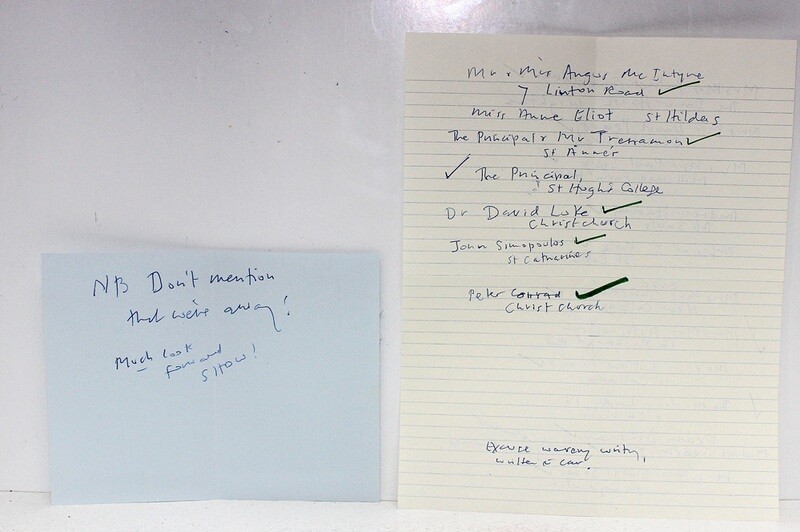 NB Don't mention
that we're away!
Much look
forward
SHOW!
Mr + Mrs Angus Mc Intyre
7 Linton Road
Miss Anne Eliot St Hildas
The Principal + Mr Trenaman
St Anne's
The Principal,
St Hugh's College
Dr David Luke
Christchurch
John Simopoulos
St Catharines
Peter Conrad
Christ Church
Excuse wavery writing,
written in car.